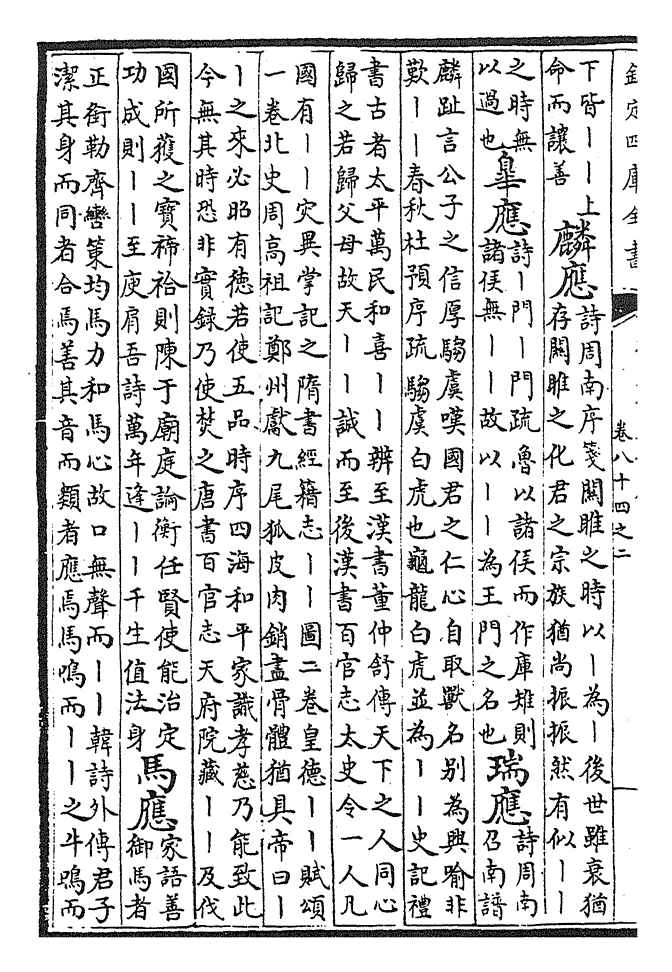 欽定四庫全書
卷八十四之二
下皆丨丨上
命而讓善
麟應
詩周南序箋關雎之時以丨為丨後世雖衰猶
存關雎之化君之宗族猶尚振振然有似丨丨
之時無
以過也
臯應
詩丨門丨門疏魯以諸侯而作庫雉則
諸侯無丨丨故以丨丨為王門之名也
瑞應
詩周南
召南譜
麟趾言公子之信厚騶虞嘆國君之仁心自取獸名别為興喻非
歎丨丨春秋杜預序疏騶虞白虎也龜龍白虎並為丨丨史記禮
書古者太平萬民和喜丨丨辨至漢書董仲舒傳天下之人同心
歸之若歸父母故天丨丨誠而至後漢書百官志太史令一人凡
國有丨丨灾異掌記之隋書經籍志丨丨圖二卷皇德丨丨賦頌
一卷北史周高祖記鄭州獻九尾狐皮肉銷盡骨體猶具帝曰丨
丨之來必昭有德若使五品時序四海和平家識孝慈乃能致此
今無其時恐非實録乃使焚之唐書百官志天府院藏丨丨及伐
國所獲之寶禘祫則陳于廟庭論衡任賢使能治定
功成則丨丨至庾肩吾詩萬年逢丨丨千生值法身
馬應
家語善
御馬者
正銜勒齊轡策均馬力和馬心故口無聲而丨丨韓詩外傳君子
潔其身而同者合焉善其音而類者應焉馬鳴而丨丨之牛鳴而